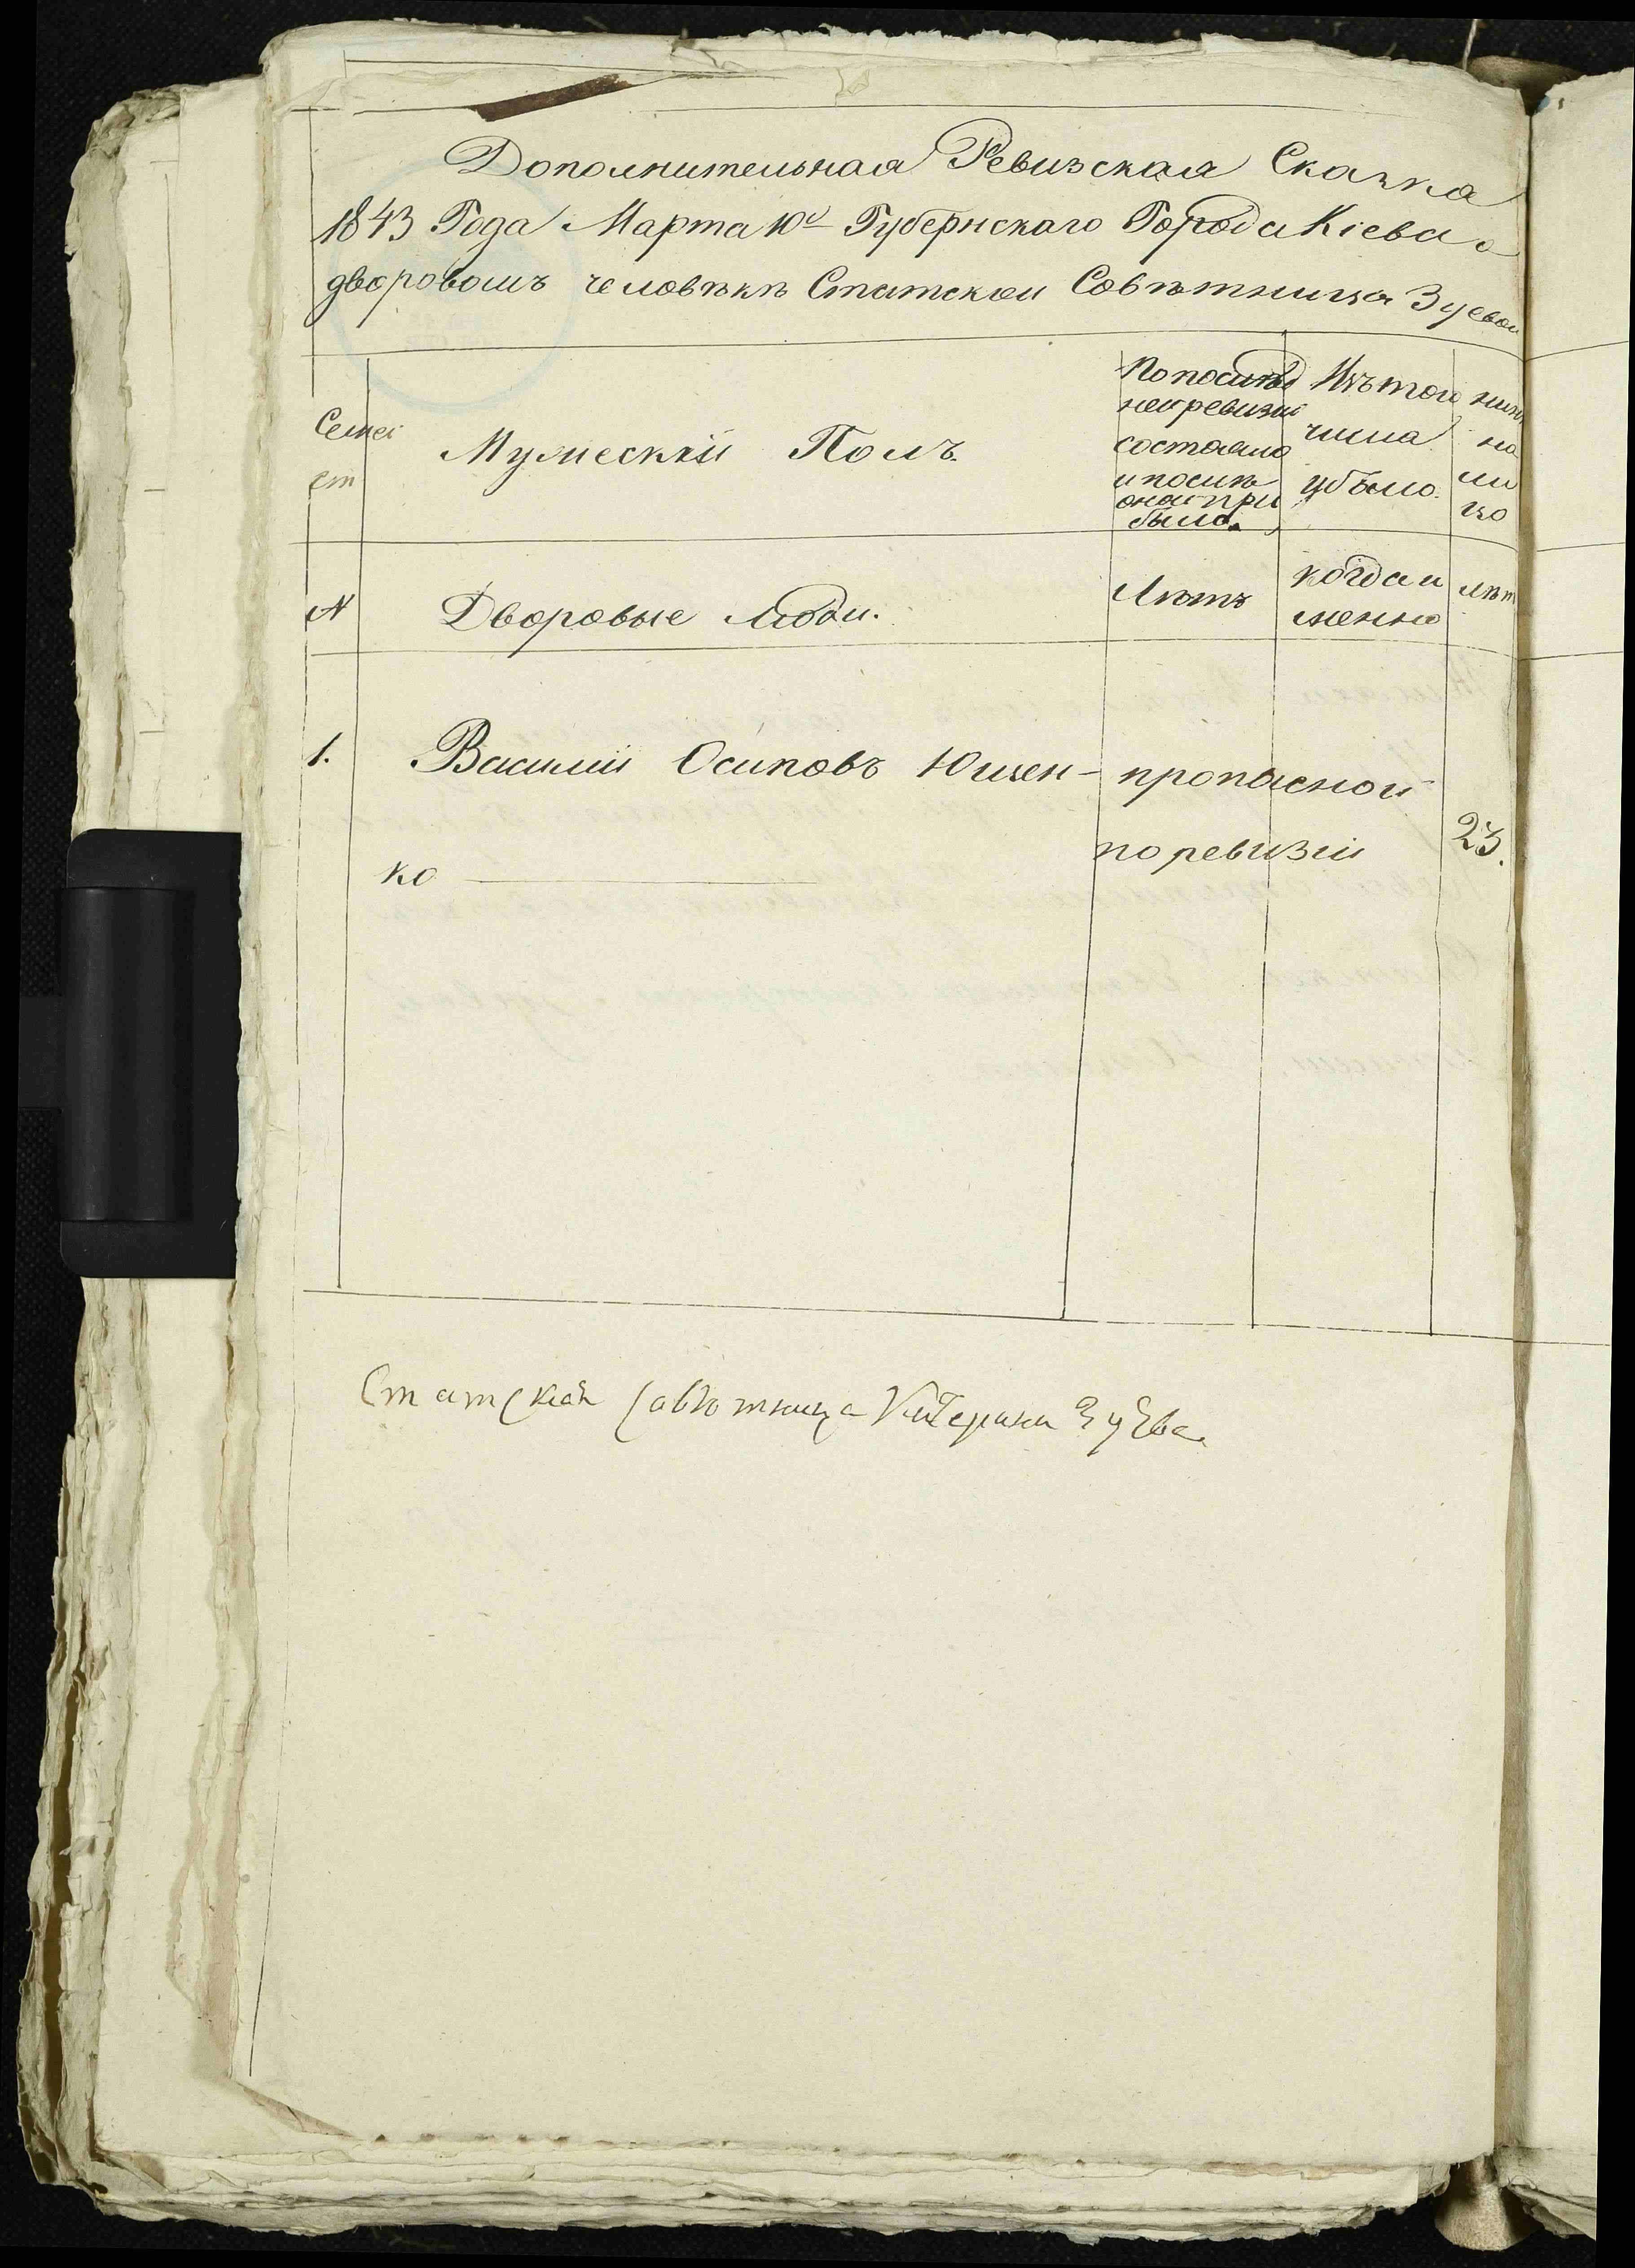 Дополнительная Ревизская Сказка
1843 Года Марта 10го Губернскаго Города Кіева о
дворовомъ человѣкѣ Статской Совѣтницы Зуевой
Семей
ст
Мужескій Полъ.
По послѣд
ней ревизіи
состояло
и послѣ
оной при
было.
Изъ того
числа
убыло.
нынѣ
на
ли
цо
N
Дворовые люди.
Лѣтъ
когда и
менно
лѣт
1.
Василій Осиповъ Ющен-
ко
пропасной
по ревизіи
23.
Статская Савѣтница Катерина Зуева